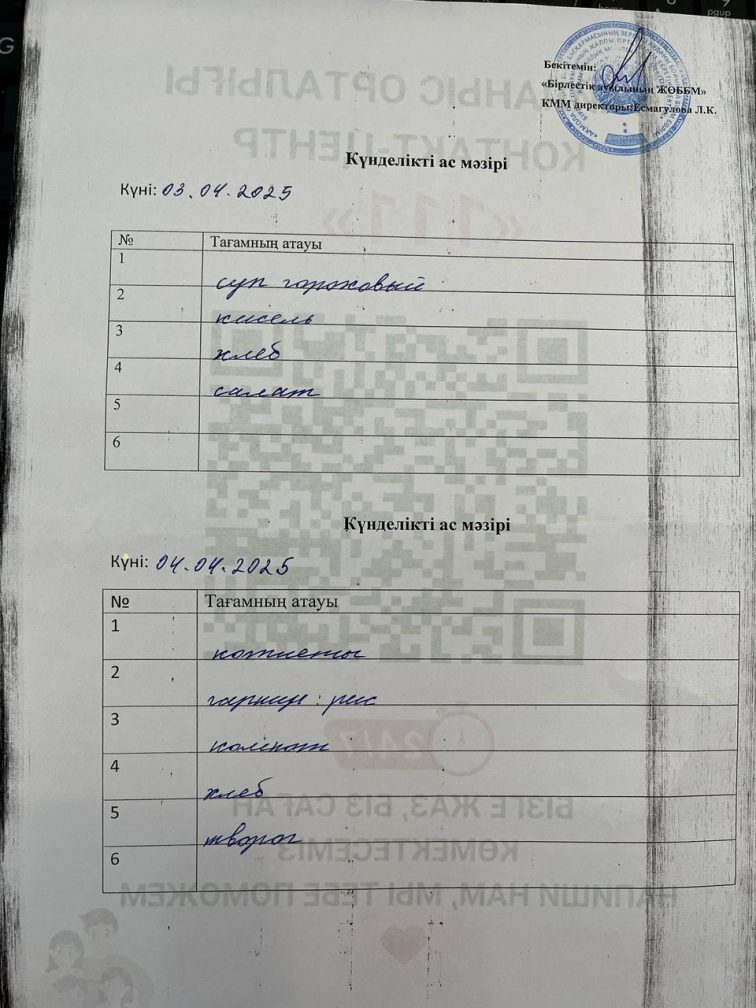 G
home
9
pgup
Бекітемін:
«Бірлестік ауылының ЖОББМ»
КММ директоры:Есмагулова Л.К.
БАЙЛАНЫС ОРТАЛЫҒЫ
КОНТАКТ-ЦЕНТР
«111»
Күнделікті ас мәзірі
Күні: 03.04.2025
№ Тағамның атауы
1 суп гороховый
2 кисель
3 хлеб
4 салат
5
6
Күнделікті ас мәзірі
Күні: 04.04.2025
№ Тағамның атауы
1 котлеты
2 гарнир: рис
3 компот
4 хлеб
5 творог
6
24/7
БІЗГЕ ЖАЗ, БІЗ САҒАН
КӨМЕКТЕСЕМІЗ
НАПИШИ НАМ, МЫ ТЕБЕ ПОМОЖЕМ